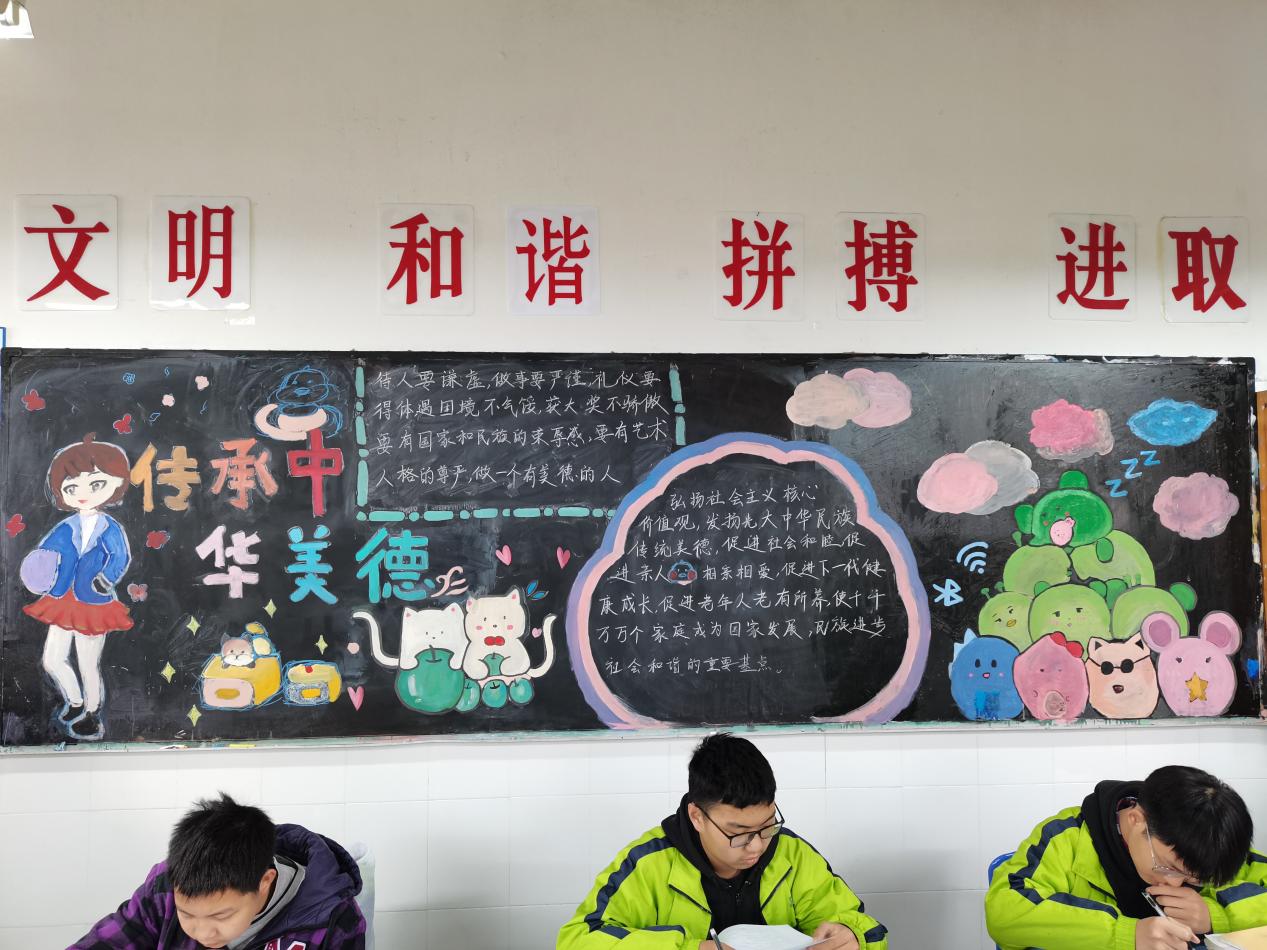 文明 和谐 拼搏 进取
传承中
华美德
待人要谦虚,做事要严谨,礼仪要
得体遇困境不气馁,获大奖不骄傲
要有国家和民族的荣辱感,要有艺术
人格的尊严,做一个有美德的人
弘扬社会主义核心
价值观,发扬光大中华民族
传统美德,促进社会和睦,促
进亲人相亲相爱,促进下一代健
康成长,促进老年人老有所养,使千千
万万个家庭成为国家发展,民族进步
社会和谐的重要基点。
zzz